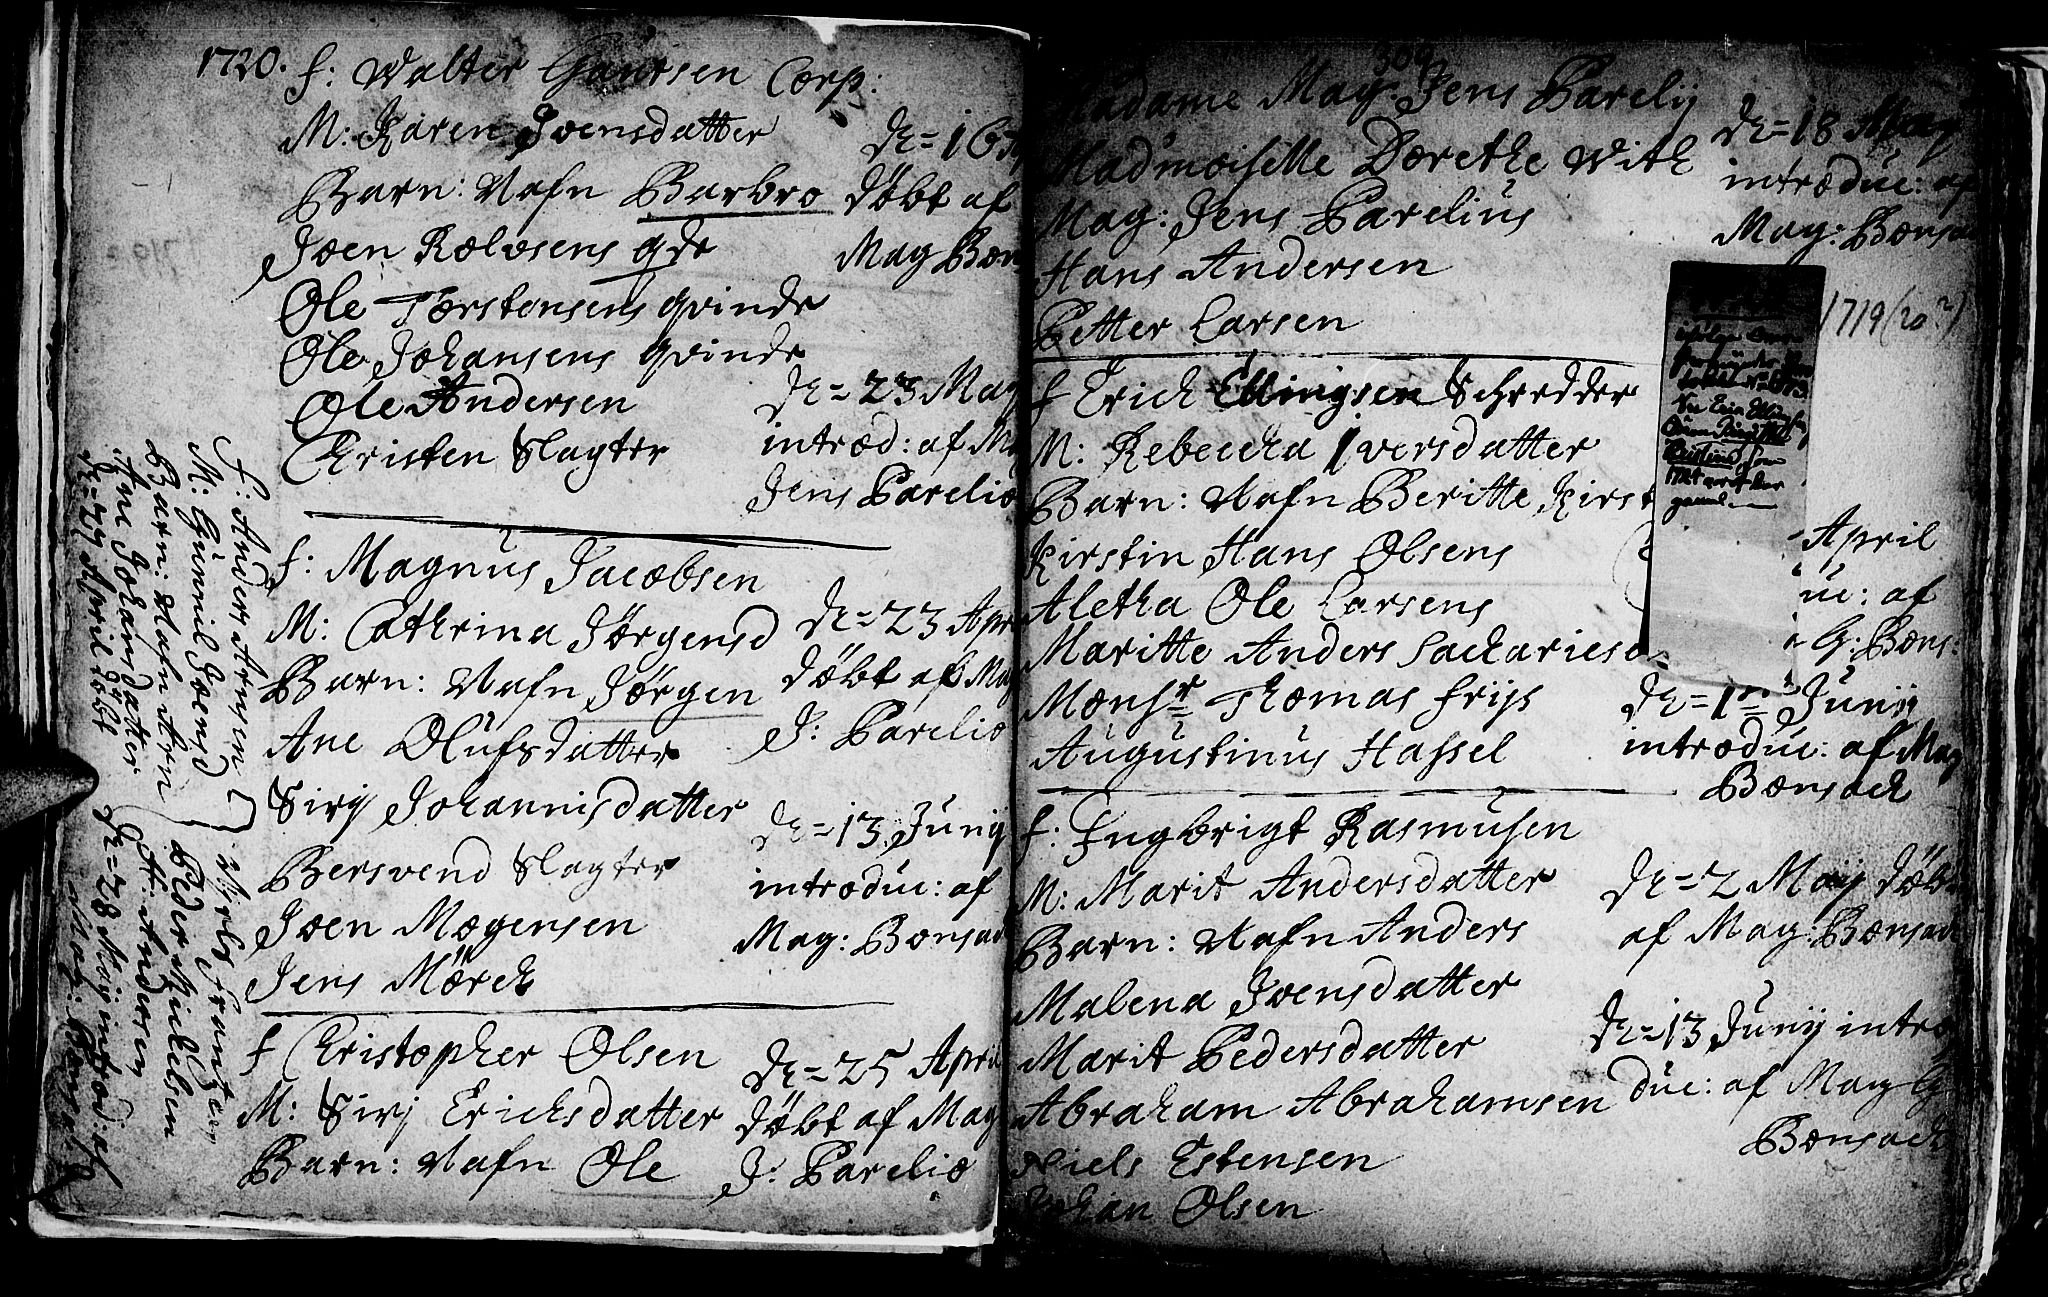 1720.
f: Walter Corp:
M: Karen Joensdatter
Barn: Nafn Barbro
Joen Rolvsens qde
Ole Torstensens qvinde
Ole Johansens qvinde
Ole Andersen
Christen Slagter
d: 16
døbt af
Mag Bon
d: 23 May
introd: af
Jens Parelio
f: Magnus Jacobsen
M: Cathrina Jørgensd
Barn: Nafn Jørgen
Ane Olufsdatter
Sirj Johannisdatter
Bersvend Slagter
Joen Mogensen
Jens Mørch
d: 23 Apr
døbt af Mag
J: Parelio
d: 13 Junij
introduc: af
Mag: Bonsach
f Christopher Olsen
M: Sirj Erichsdatter
Barn: Nafn Ole
d: 25 April
døbt af Mag
J: Parelio
F: Anders Arnsen
M: Gunnil Joensd
Barn: Nafn Arn
Ane Johansdatter
d: 27 April døbt
Niels Frantzen
Peder Mickelsen
H: Andersen
d: 28 Maij introd: af
Mag: Bonsach
309
Madame Mag Jens Parelij
Madmoiselle Dorethe With
Mag: Jens Parelius
Hans Andersen
Petter Larsen
d: 18 May
introduc: af
Mag: Bonsa
1719 (20?)
f Erich Ellingsen Schredder
M: Rebeccha Iversdatter
Barn: Nafn Beritte, Kirst
Kirstin Hans Olsens
Aletha Ole Larsens
Maritte Anders Sachariesd
Monsr Thomas Friis
Augustinus Hassel
April
uc: af
G: Bons:
d: 1 Junij
introduc: af Mag
Bonsach
f: Engbrigt Rasmusen
M: Marit Andersdatter
Barn: Nafn Anders
Malena Joensdatter
Marit Pedersdatter
Abraham Abrahamsen
Niels Estensen
Johan Olsen
d: 2 Maij døbt
af Mag: Bonsach
d: 13 Junij intro
duc: af Mag G
Bonsach